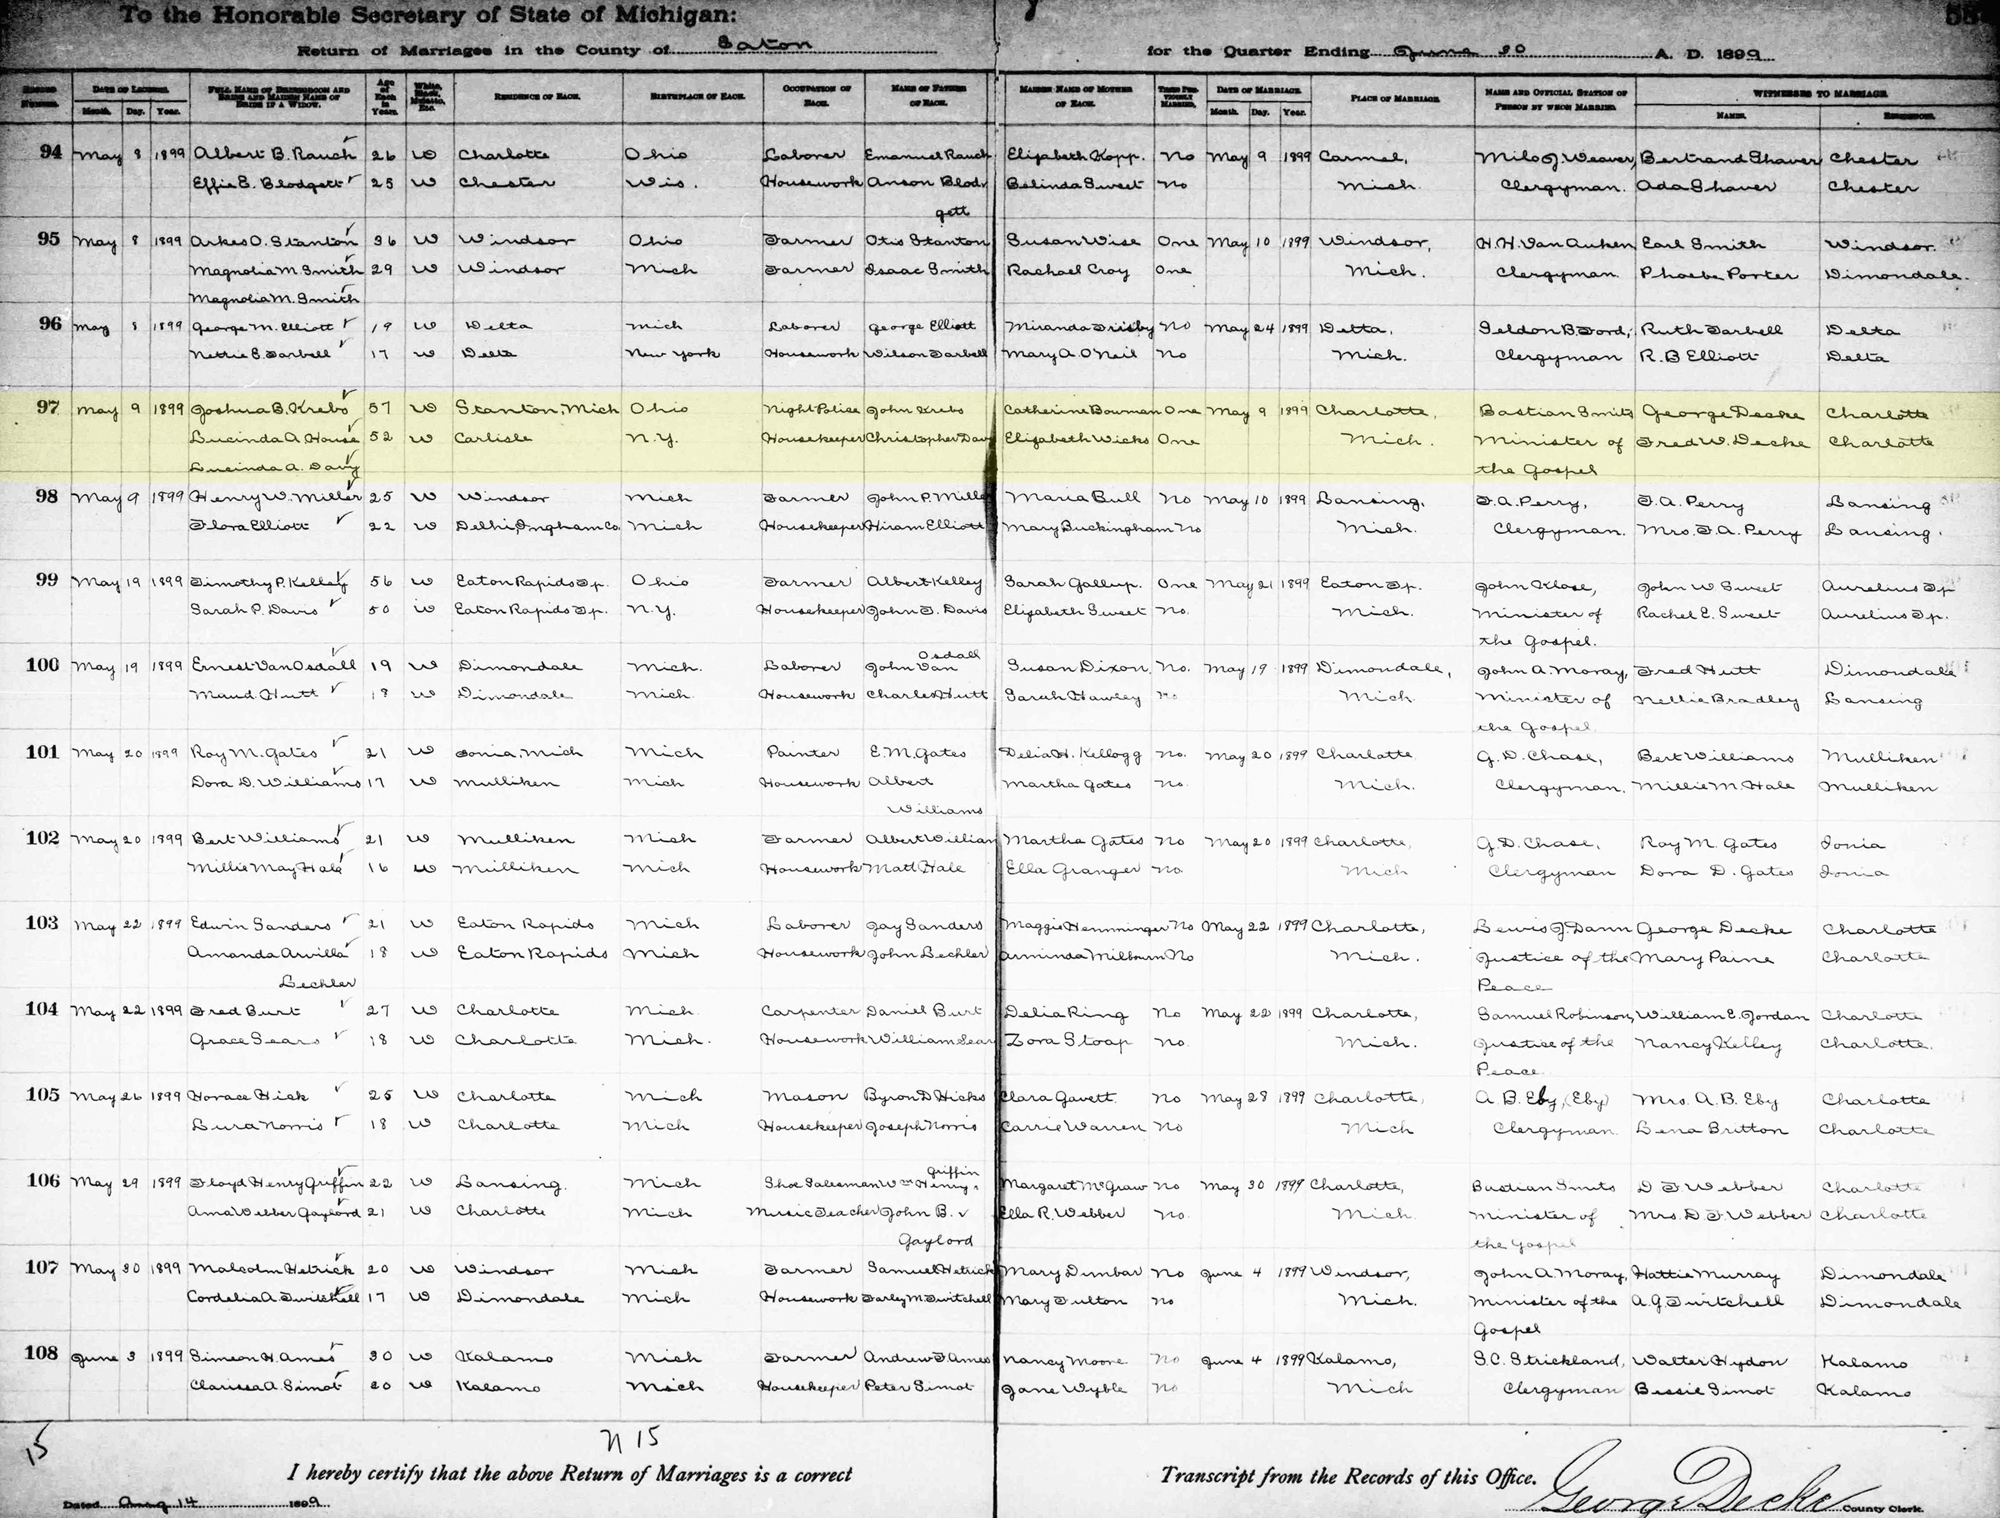 To the Honorable Secretary of State of Michigan:
Return of Marriages in the County of Eaton for the Quarter Ending June 30 A. D. 1899
Record Number. Date of License. Full Name of Bridegroom and Bride and Maiden Name of Bride if a Widow. Age of Each in Years. White, Black, Mulatto, Etc. Residence of Each. Birthplace of Each. Occupation of Each. Name of Father of Each. Maiden Name of Mother of Each. Times Previously Married. Date of Marriage. Place of Marriage. Name and Official Station of Person by whom Married. Witnesses to Marriage.
Month. Day. Year. Month. Day. Year. Names. Residence.
94 May 8 1899 Albert B. Rauch 26 W Charlotte Ohio Laborer Emanuel Rauch Elizabeth Kopp. No May 9 1899 Carmel, Milo J. Weaver, Bertrand Shaver Chester
Effie E. Blodgett 25 W Chester Wis. Housework Anson Blod- Belinda Sweet No Mich. Clergyman. Ada Shaver Chester
gett
95 May 8 1899 Arkes O. Stanton 36 W Windsor Ohio Farmer Otis Stanton Susan Wise One May 10 1899 Windsor, H. H. Van Auken Earl Smith Windsor.
Magnolia M. Smith 29 W Windsor Mich Farmer Isaac Smith Rachael Croy One Mich. Clergyman. Phoebe Porter Dimondale.
Magnolia M. Smith
96 May 8 1899 George M. Elliott 19 W Delta Mich Laborer George Elliott Miranda Frisby No May 24 1899 Delta, Seldon B. Ford, Ruth Tarbell Delta
Nettie E. Tarbell 17 W Delta New York Housework Wilson Tarbell Mary A. O'Neil No Mich. Clergyman R. B Elliott Delta
97 May 9 1899 Joshua B. Krebs 57 W Stanton, Mich Ohio Night Police John Krebs Catherine Bowman One May 9 1899 Charlotte, Bastian Smits George Decke Charlotte
Lucinda A House 52 W Carlisle N.Y. Housekeeper Christopher Davy Elizabeth Wicks One Mich. Minister of Fred W. Decke Charlotte
Lucinda A. Davy the Gospel
98 May 9 1899 Henry W. Miller 25 W Windsor Mich Farmer John P. Mille Maria Bull No May 10 1899 Lansing, F. A. Perry, F. A. Perry Lansing
Flora Elliott 22 W Delhi, Ingham Co. Mich Housekeeper Hiram Elliott Mary Buckingham No Mich. Clergyman. Mrs. F. A. Perry Lansing.
99 May 19 1899 Timothy P. Kelley 56 W Eaton Rapids Tp. Ohio Farmer Albert Kelley Sarah Gallup. One May 21 1899 Eaton Tp. John Klose, John W Sweet Aurelius Tp
Sarah P. Davis 50 W Eaton Rapids Tp. N.Y. Housekeeper John T. Davis Elizabeth Sweet No. Mich. Minister of Rachel E. Sweet Aurelius Tp.
the Gospel.
100 May 19 1899 Ernest Van Osdall 19 W Dimondale Mich. Laborer John Van Osdall Susan Dixon. No. May 19 1899 Dimondale, John A. Moray, Fred Hutt Dimondale
Maud Hutt 18 W Dimondale Mich. Housework Charles Hutt Sarah Hawley No Mich. Minister of Nellie Bradley Lansing
the Gospel
101 May 20 1899 Roy M. Gates 21 W Ionia, Mich Mich Painter E. M. Gates Delia H. Kellogg No. May 20 1899 Charlotte G. D. Chase, Bert Williams Mulliken
Dora D. Williams 17 W Mulliken Mich Housework Albert Martha Gates No. Mich. Clergyman. Millie M. Hale Mulliken
Williams
102 May 20 1899 Bert Williams 21 W Mulliken Mich Farmer Albert William Martha Gates No May 20 1899 Charlotte, G. D. Chase, Roy M. Gates Ionia
Millie May Hale 16 W Mulliken Mich Housework Matt Hale Ella Granger No. Mich Clergyman Dora D. Gates Ionia
103 May 22 1899 Edwin Sanders 21 W Eaton Rapids Mich Laborer Jay Sanders Maggie Hemminger No May 22 1899 Charlotte, Lewis J. Dann George Decke Charlotte
Amanda Arvilla 18 W Eaton Rapids Mich Housework John Bechler Arminda Milbourn No Mich. Justice of the Mary Paine Charlotte
Bechler Peace
104 May 22 1899 Fred Burt 27 W Charlotte Mich. Carpenter Daniel Burt Delia Ring No May 22 1899 Charlotte, Samuel Robinson, William E. Jordan Charlotte
Grace Sears 18 W Charlotte Mich. Housework William Sear Zora Stoap No. Mich. Justice of the Nancy Kelley Charlotte.
Peace.
105 May 26 1899 Horace Hick 25 W Charlotte Mich Mason Byron D Hicks Clara Gavett. No May 28 1899 Charlotte, A. B. Eby, (Eby) Mrs. A. B. Eby Charlotte
Lura Norris 18 W Charlotte Mich Housekeeper Joseph Norris Carrie Warren No Mich Clergyman. Lena Britton Charlotte
106 May 29 1899 Floyd Henry Griffin 22 W Lansing. Mich Shoe Salesman Wm Henry Griffin Margaret McGraw No May 30 1899 Charlotte, Bastian Smits D F Webber Charlotte
Ama Webber Gaylord 21 W Charlotte Mich Music Teacher John B. Ella R. Webber No. Mich. Minister of Mrs. D. F Webber Charlotte
Gaylord the Gospel
107 May 30 1899 Malcolm Hetrick 20 W Windsor Mich Farmer Samuel Hetrick Mary Dunbar No June 4 1899 Windsor, John A. Moray, Hattie Murray Dimondale
Cordelia A. Twitchell 17 W Dimondale Mich Housework Farley M. Twitchell Mary Fulton No Mich. Minister of the A. G. Twitchell Dimondale
Gospel
108 June 3 1899 Simeon H. Ames 30 W Kalamo Mich Farmer Andrew J. Ames Nancy Moore No June 4 1899 Kalamo, S. C. Strickland, Walter Hydon Kalamo
Clarissa A. Simot 20 W Kalamo Mich Housekeeper Peter Simot Jane Wyble No Mich Clergyman Bessie Simot Kalamo
15 N 15
I hereby certify that the above Return of Marriages is a correct Transcript from the Records of this Office.
Dated Aug 14 1899 George Decke County Clerk.